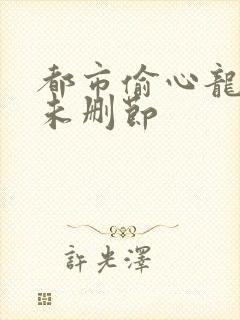 都市偷心龍
未删節
許光澤